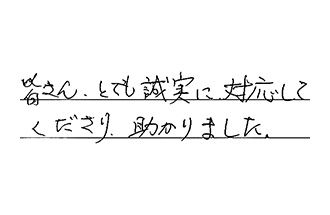 皆さん、とても誠実に対応して
くださり、助かりました。